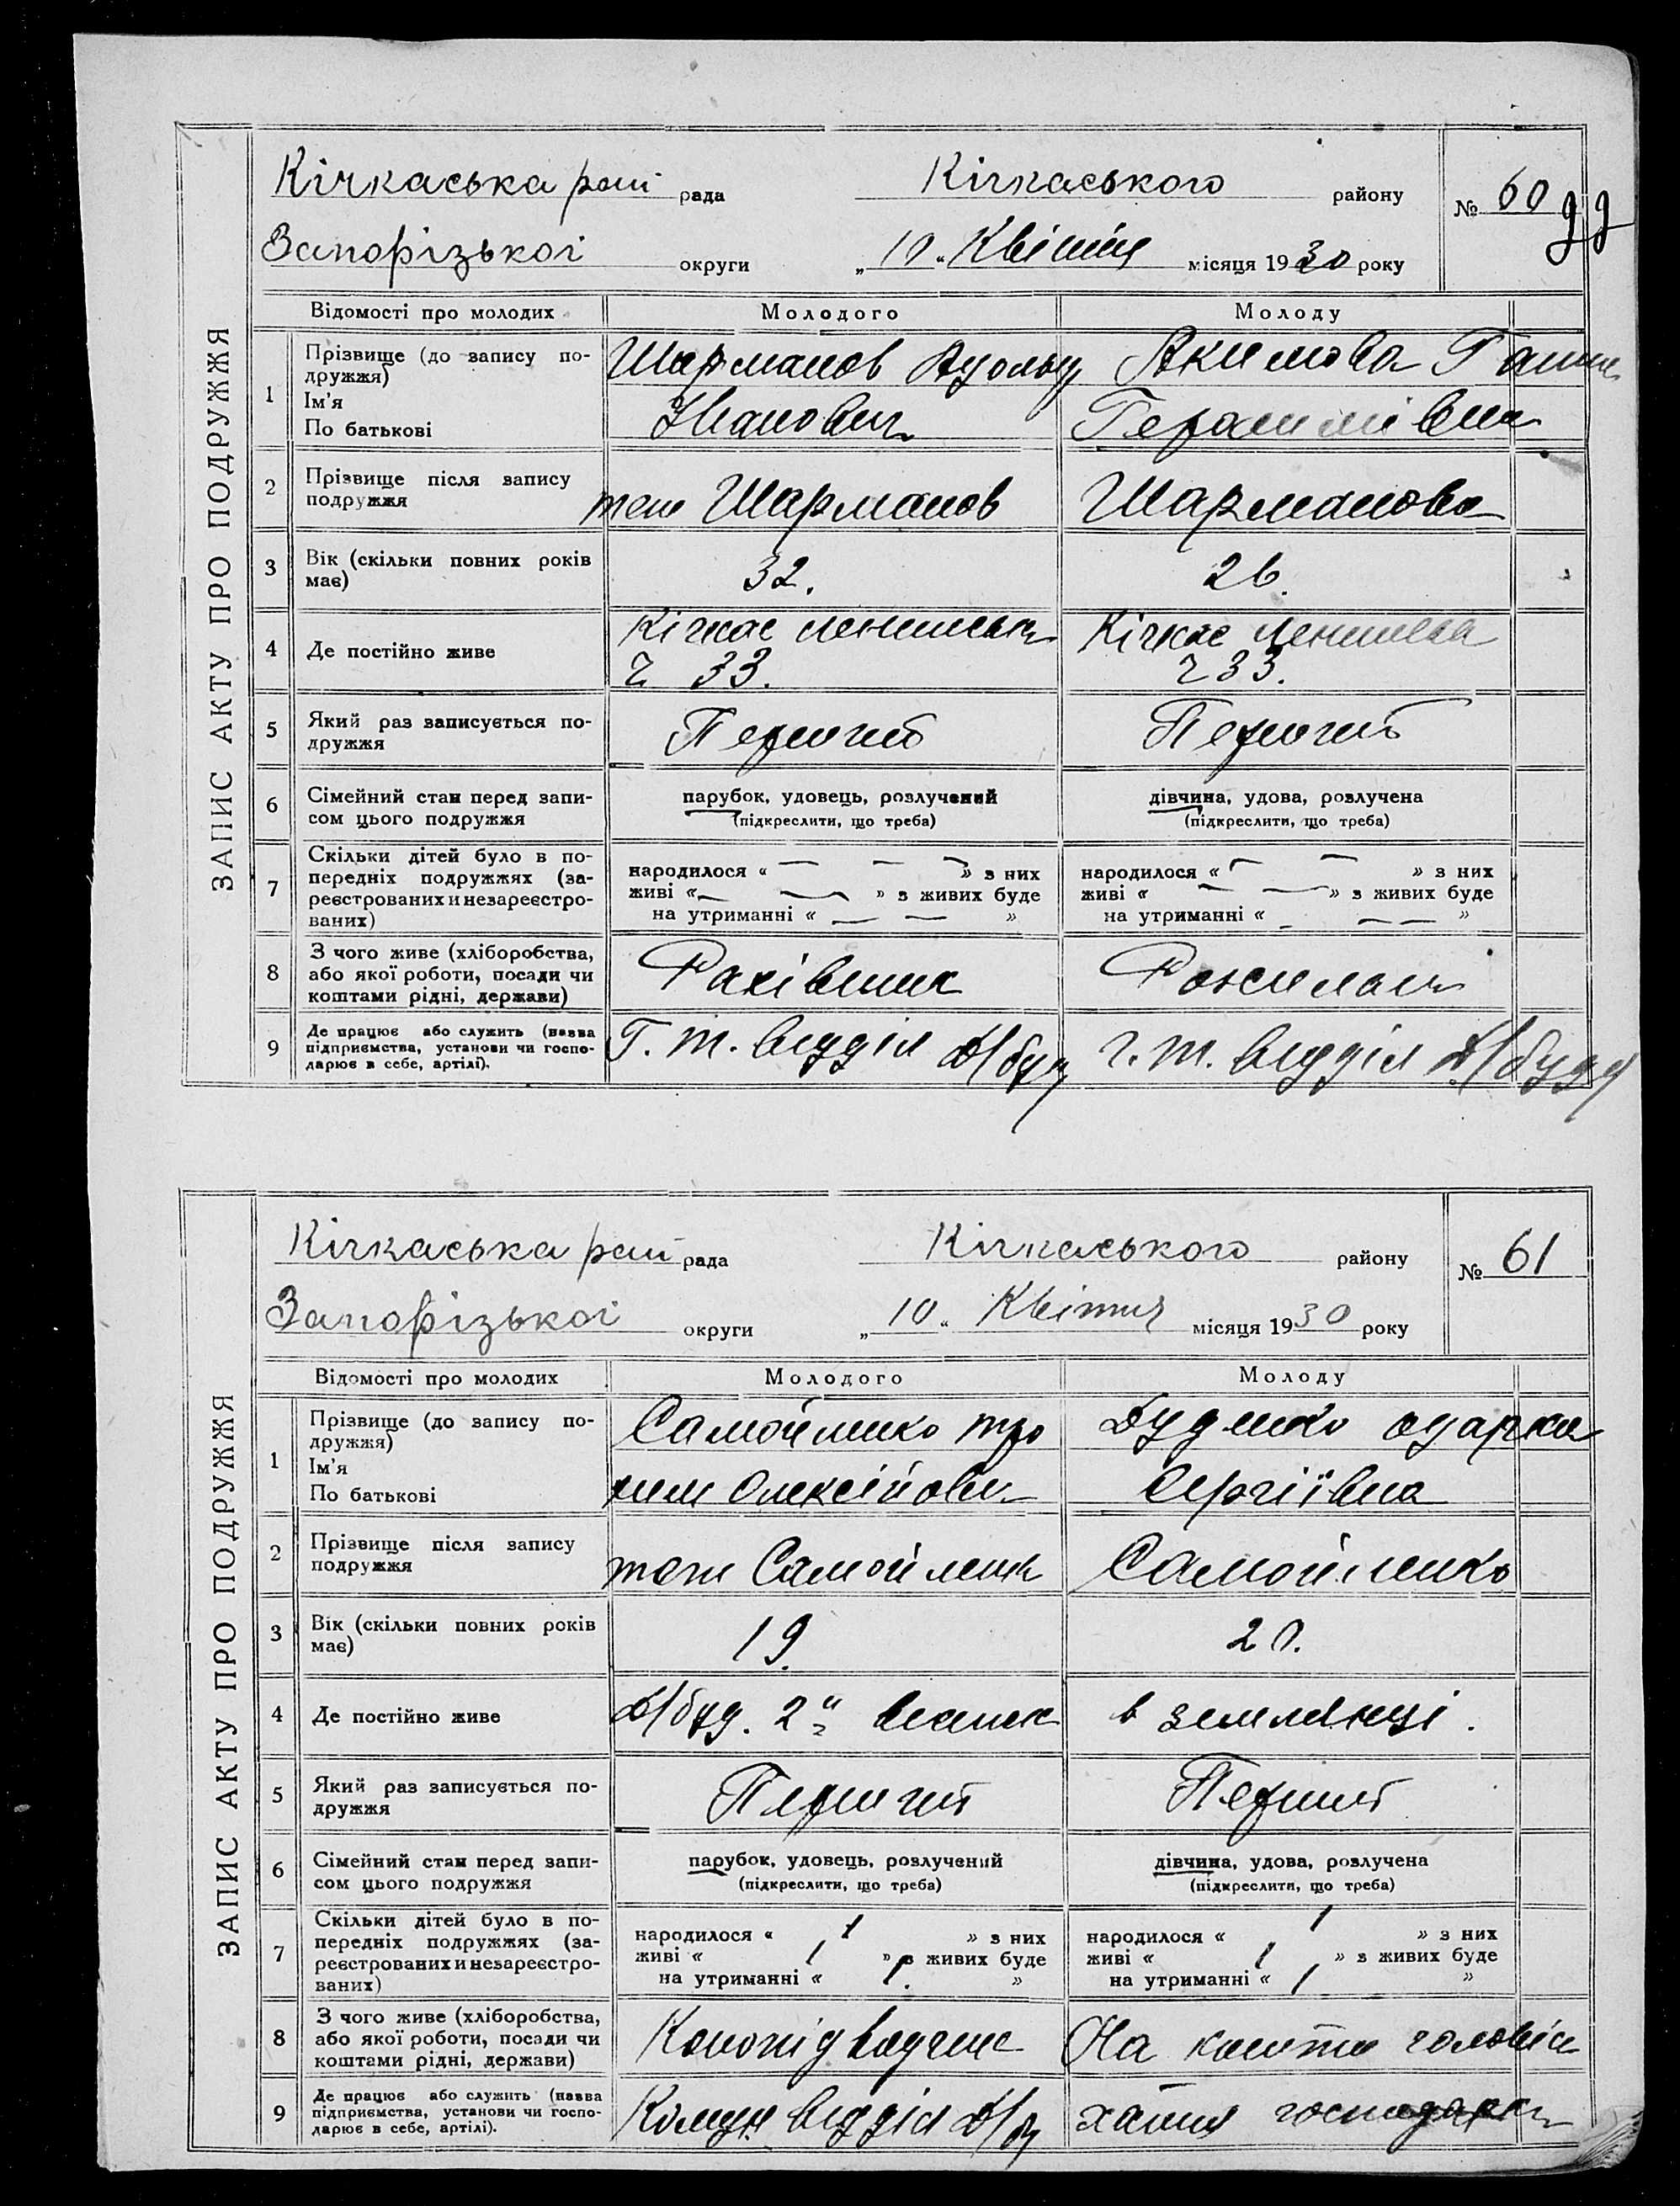 ЗАПИС АКТУ ПРО ПОДРУЖЖЯ
Кічкаська рай рада Кічкаського району № 60
Запорізької округи „10“ Квітня місяця 1930 року
Відомості про молодих Молодого Молоду
1 Прізвище (до запису по- Шарманов Адольф Акимова Ганна
дружжя)
Ім'я
По батькові Іванович Герасимівна
2 Прізвище після запису теж Шарманов Шарманова
подружжя
3 Вік (скільки повних років 32. 26.
має)
4 Де постійно живе Кічкас Ленинська Кічкас Ленинська
ч 33. ч 33.
5 Який раз записується по- Перший Перший
дружжя
6 Сімейний стан перед запи- парубок, удовець, розлучений дівчина, удова, розлучена
сом цього подружжя (підкреслити, що треба) (підкреслити, що треба)
7 Скільки дітей було в по- народилося « — — — » з них народилося « — — » з них
передніх подружжях (за- живі « — — » з живих буде живі « — — » з живих буде
реєстрованих и незареєстро- на утриманні « — — » на утриманні « — — »
ваних)
8 З чого живе (хліборобства, Рахівник
або якої роботи, посади чи
коштами рідні, держави)
9 Де працює або служить (назва Г. т. відділ Д/буд Г. т. відділ Д/буду
підприємства, установи чи госпо-
дарює в себе, артілі).
ЗАПИС АКТУ ПРО ПОДРУЖЖЯ
Кічкаська рай рада Кічкаського району № 61
Запорізької округи „10“ Квітня місяця 1930 року
Відомості про молодих Молодого Молоду
1 Прізвище (до запису по- Самойленко Тро Дуденко Одарка
дружжя)
Ім'я
По батькові хим Олексійович Сергіївна
2 Прізвище після запису теж Самойленк Самойленко
подружжя
3 Вік (скільки повних років 19. 20.
має)
4 Де постійно живе Д/буд. 2й в землянці.
5 Який раз записується по- Перший Перший
дружжя
6 Сімейний стан перед запи- парубок, удовець, розлучений дівчина, удова, розлучена
сом цього подружжя (підкреслити, що треба) (підкреслити, що треба)
7 Скільки дітей було в по- народилося « / » з них народилося « / » з них
передніх подружжях (за- живі « / » з живих буде живі « / » з живих буде
реєстрованих и незареєстро- на утриманні « / » на утриманні « / »
ваних)
8 З чого живе (хліборобства, На кошти чоловіка
або якої роботи, посади чи
коштами рідні, держави)
9 Де працює або служить (назва Комун відділ Д/б хатня господарка
підприємства, установи чи госпо-
дарює в себе, артілі).